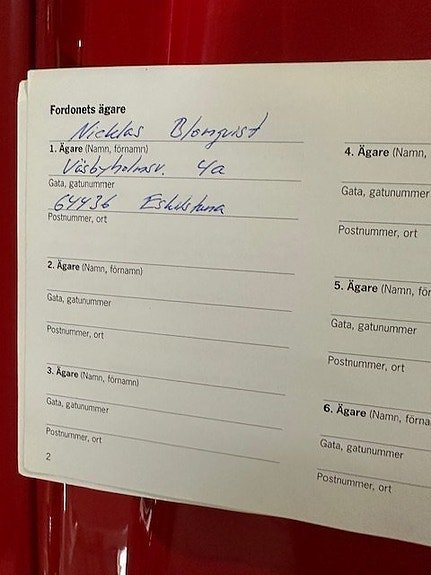 Fordonets ägare
Nicklas Blomqvist
1. Ägare (Namn, förnamn)
Väsbyholmsv. 4a
Gata, gatunummer
64436 Eskilstuna
Postnummer, ort
2. Ägare (Namn, förnamn)
Gata, gatunummer
Postnummer, ort
3. Ägare (Namn, förnamn)
Gata, gatunummer
Postnummer, ort
2
4. Ägare (Namn,
Gata, gatunummer
Postnummer, ort
5. Ägare (Namn, för
Gata, gatunummer
Postnummer, ort
6. Ägare (Namn, förna
Gata, gatunummer
Postnummer, ort